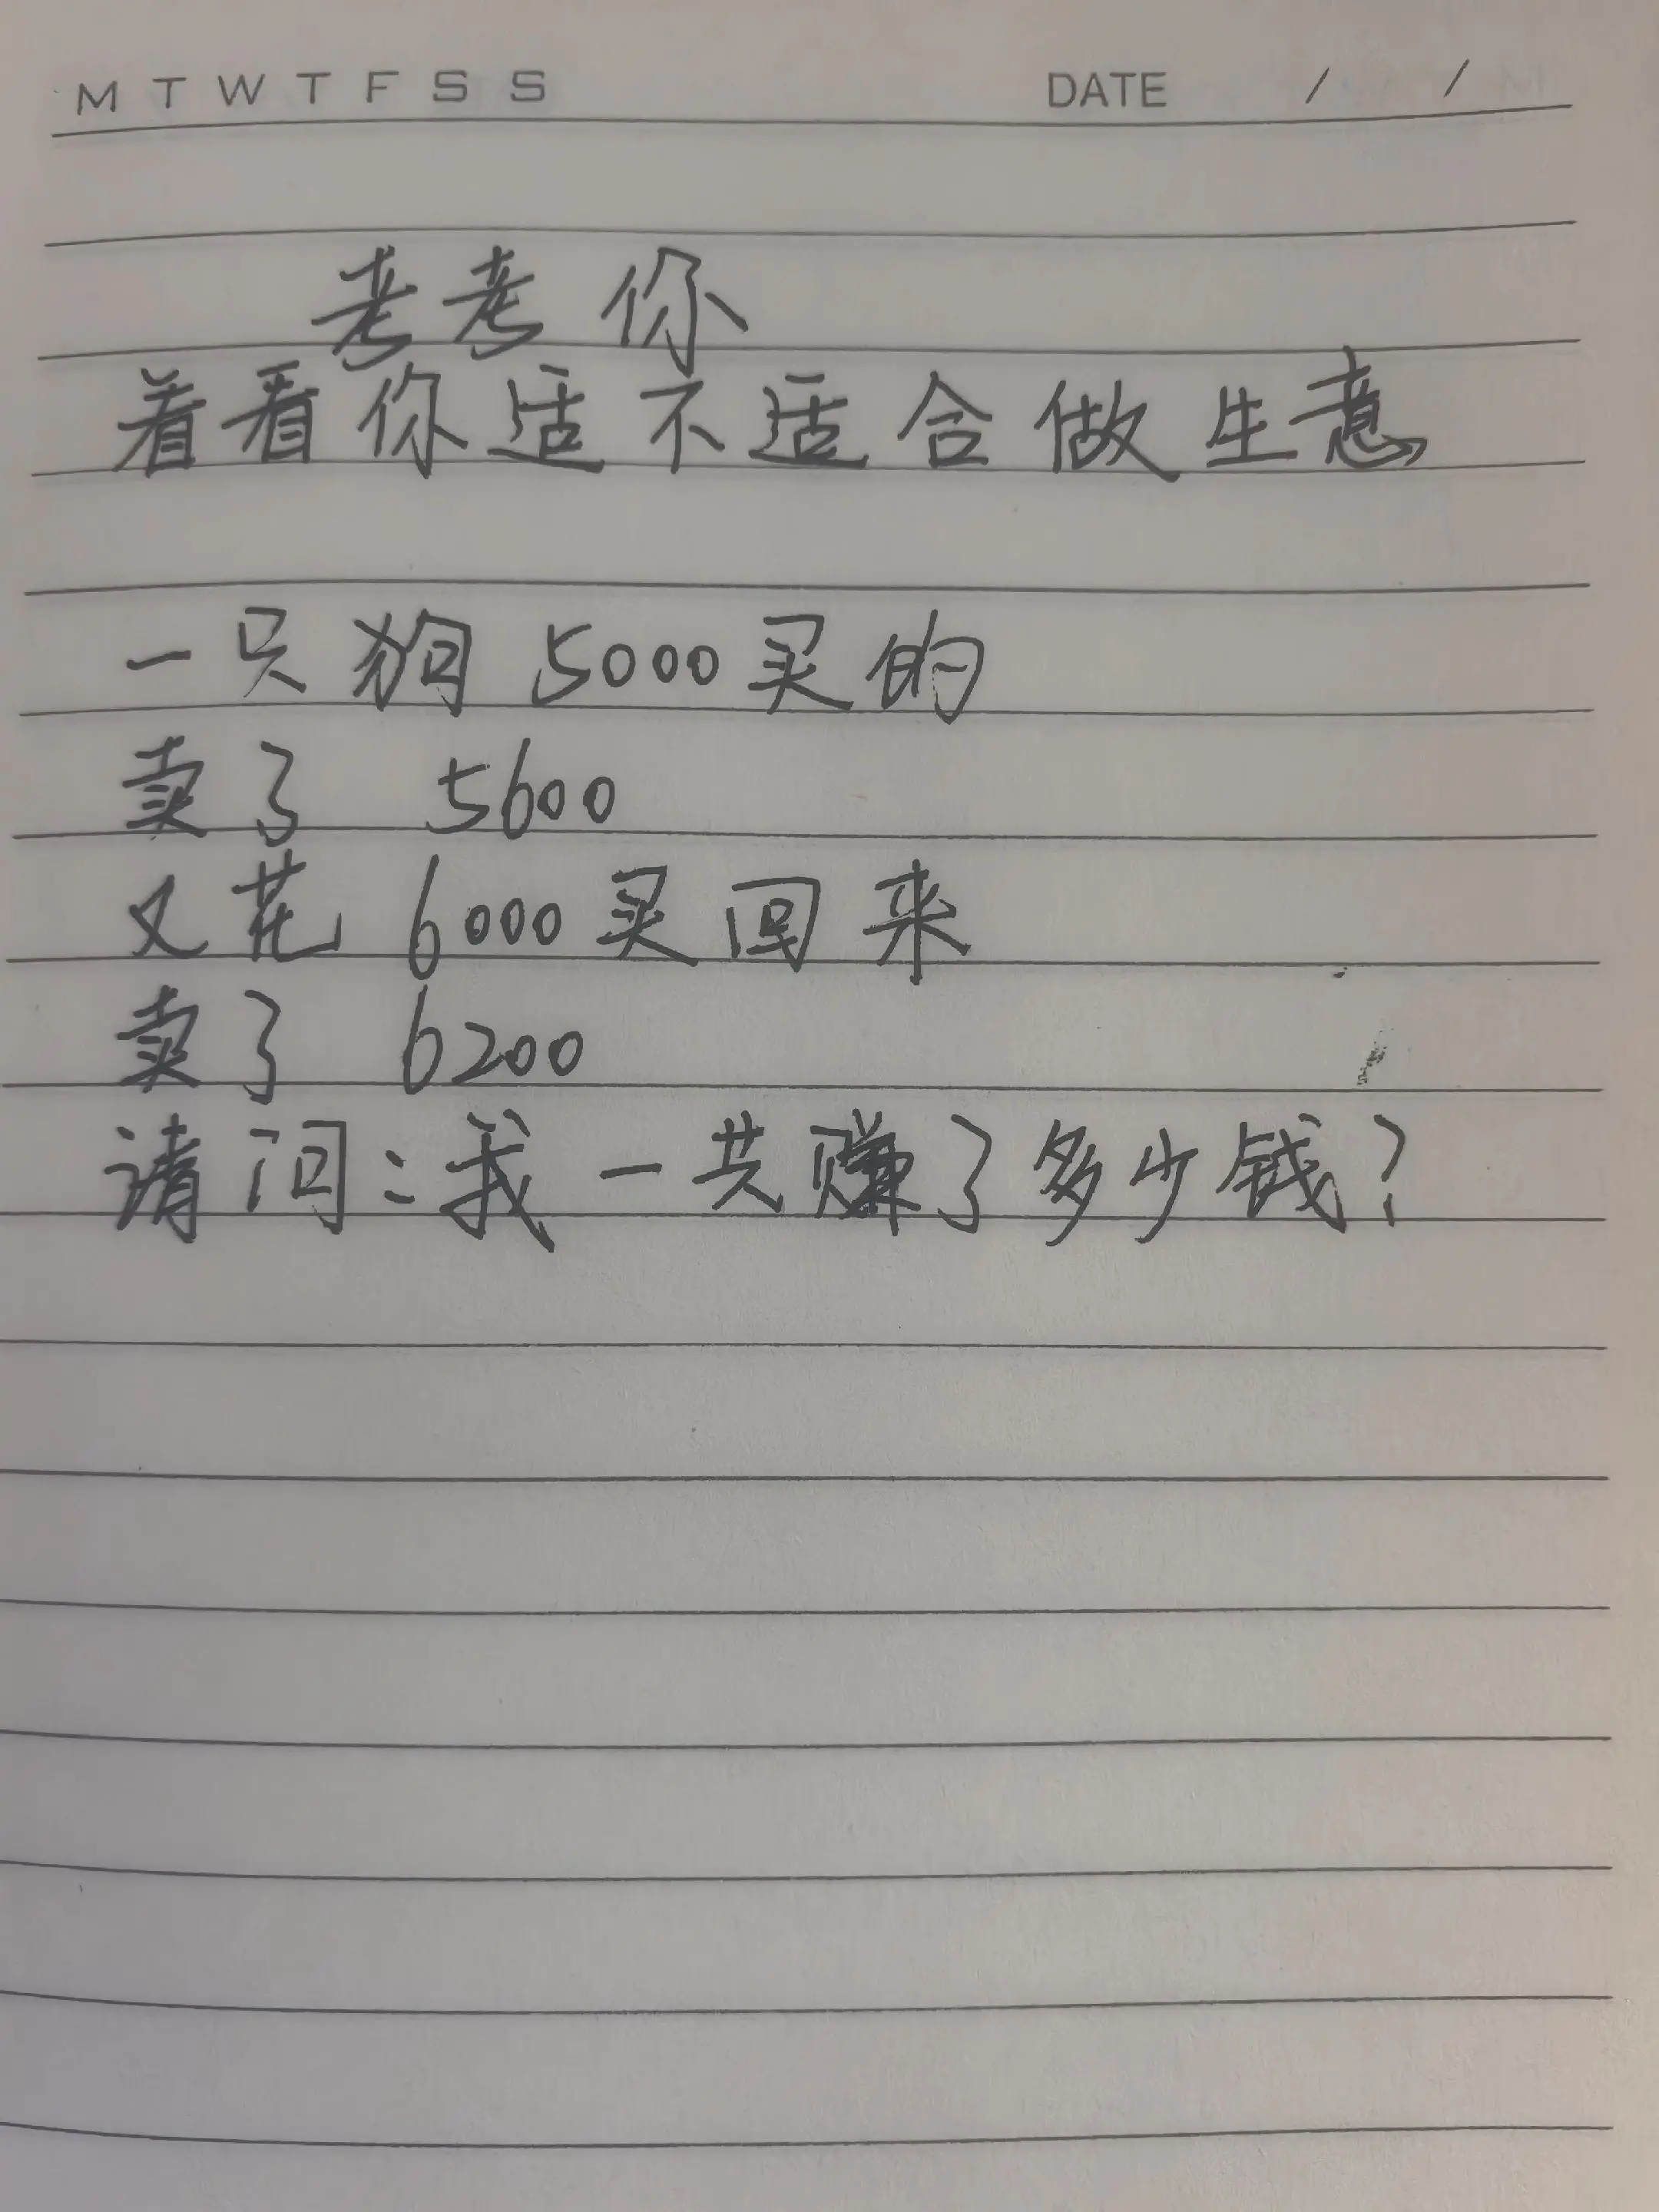 M T W T F S S DATE / /
考考你
看看你适不适合做生意
一只狗 5000买的
卖了 5600
又花 6000买回来
卖了 6200
请问:我一共赚了多少钱?